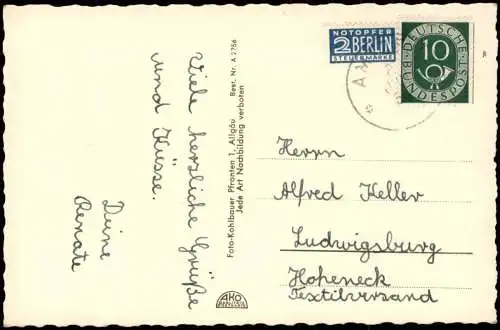 Viele herzliche Grüße
und Küsse.
Deine
Renate
Foto-Kohlbauer Pfronten 1, Allgäu Best. Nr. A 2756
Jede Art Nachbildung verboten
AKO
NOTOPFER
2 BERLIN
STEUERMARKE
DEUTSCHE
10
BUNDESPOST
Herrn
Alfred Keller
Ludwigsburg
Hoheneck
Textilversand